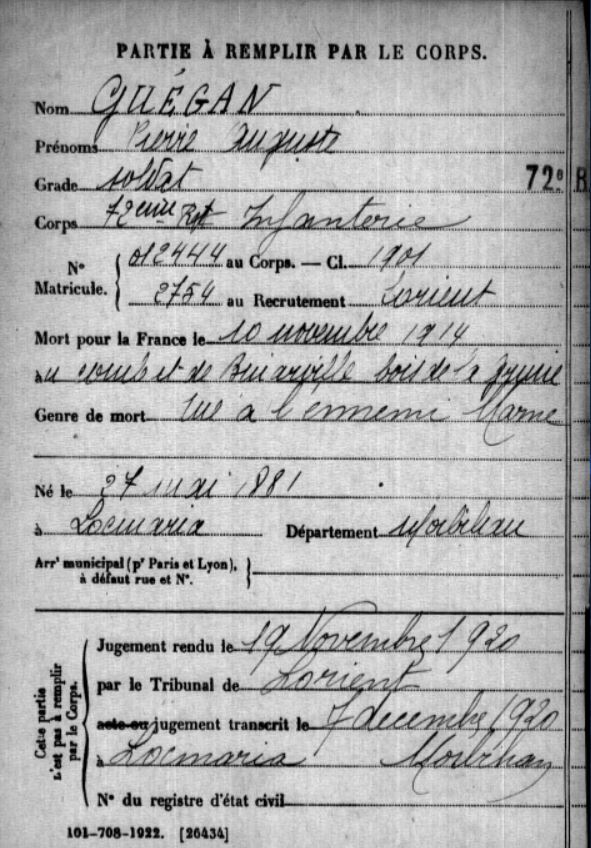 PARTIE À REMPLIR PAR LE CORPS.
Nom GUÉGAN
Prénoms Pierre Auguste
Grade soldat
72e R
Corps 72eme Rgt Infanterie
No Matricule. { 012444 au Corps. — Cl. 1901
2754 au Recrutement Lorient
Mort pour la France le 10 novembre 1914
au combat de Binarville bois de la Grurie
Genre de mort tué à l'ennemi Marne
Né le 27 mai 1881
à Locmaria Département Morbihan
Arrt municipal (pr Paris et Lyon), à défaut rue et No. }
Cette partie n'est pas à remplir par le Corps.
Jugement rendu le 19 Novembre 1920
par le Tribunal de Lorient
acte ou jugement transcrit le 7 decembre 1920
à Locmaria Morbihan
No du registre d'état civil
101-708-1922. [26434]